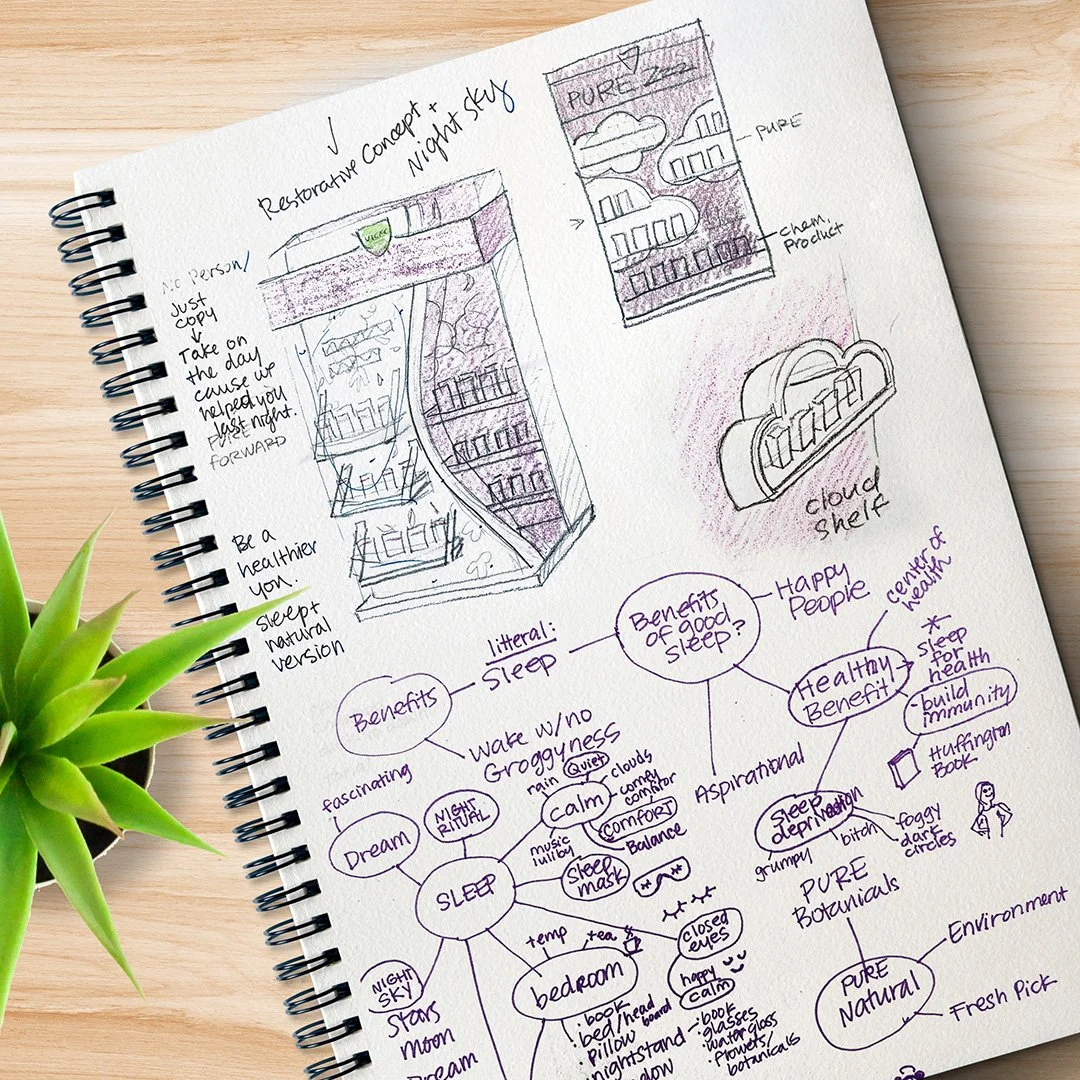 Restorative Concept +
Night Sky
PURE Zzzz
PURE
chem.
Product
VICKS
No Person/
Just
copy
Take on
the day
cause we
helped you
last night.
PURE
FORWARD
cloud
Shelf
Be a
healthier
you.
Sleep +
natural
version
Benefits
of good
sleep?
Happy
People
center of
health
litteral:
Sleep
Benefits
Healthy
Benefit
* sleep
for
health
-build
immunity
Huffington
Book
Wake w/no
Groggyness
Aspirational
Sleep
deprivation
foggy
dark
circles
bitch
grumpy
fascinating
Dream
NIGHT
RITUAL
rain
Quiet
clouds
calm
comfy
comfortor
COMFORT
Balance
music
lulliby
SLEEP
Sleep
mask
PURE
Botanicals
closed
eyes
happy
calm
temp
tea
bedroom
NIGHT
SKY
Stars
moon
Dream
·book
·bed/head
board
·Pillow
·nightstand
-book
·glasses
·waterglass
·flowers/
botanicals
PURE
Natural
Environment
Fresh Pick